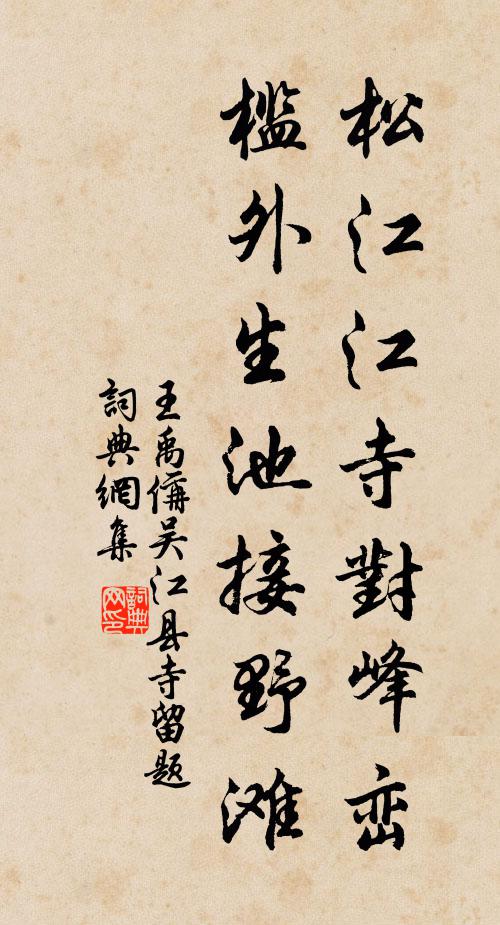 松江江寺對峰峦
槛外生池接野滩
王禹偁吴江县寺留题
詞典網集
詞典网印